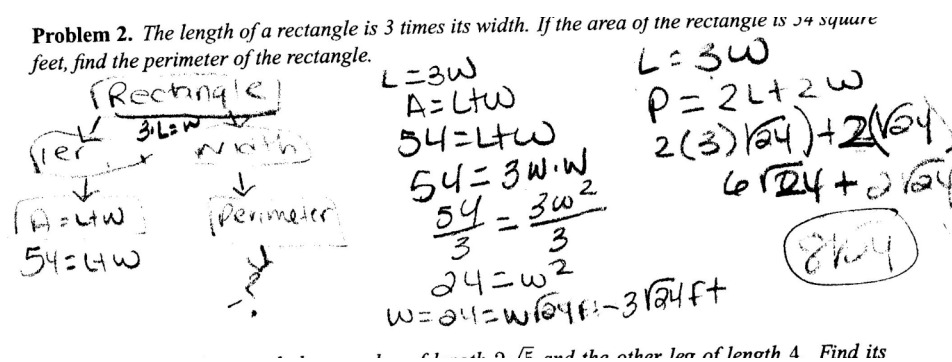 Problem 2. The length of a rectangle is 3 times its width. If the area of the rectangle is 54 square
feet, find the perimeter of the rectangle.
Rectangle
3·L=W
Width
A=L+W
54=L+W
Perimeter
?
L=3W
A=L+W
54=L+W
54=3W·W
54/3=3w²/3
24=w²
W=24=W√24ft-3√24ft
L=3W
P=2L+2W
2(3)√24)+2(√24)
6√24+2√24
8√24
and the other leg of length 4. Find its